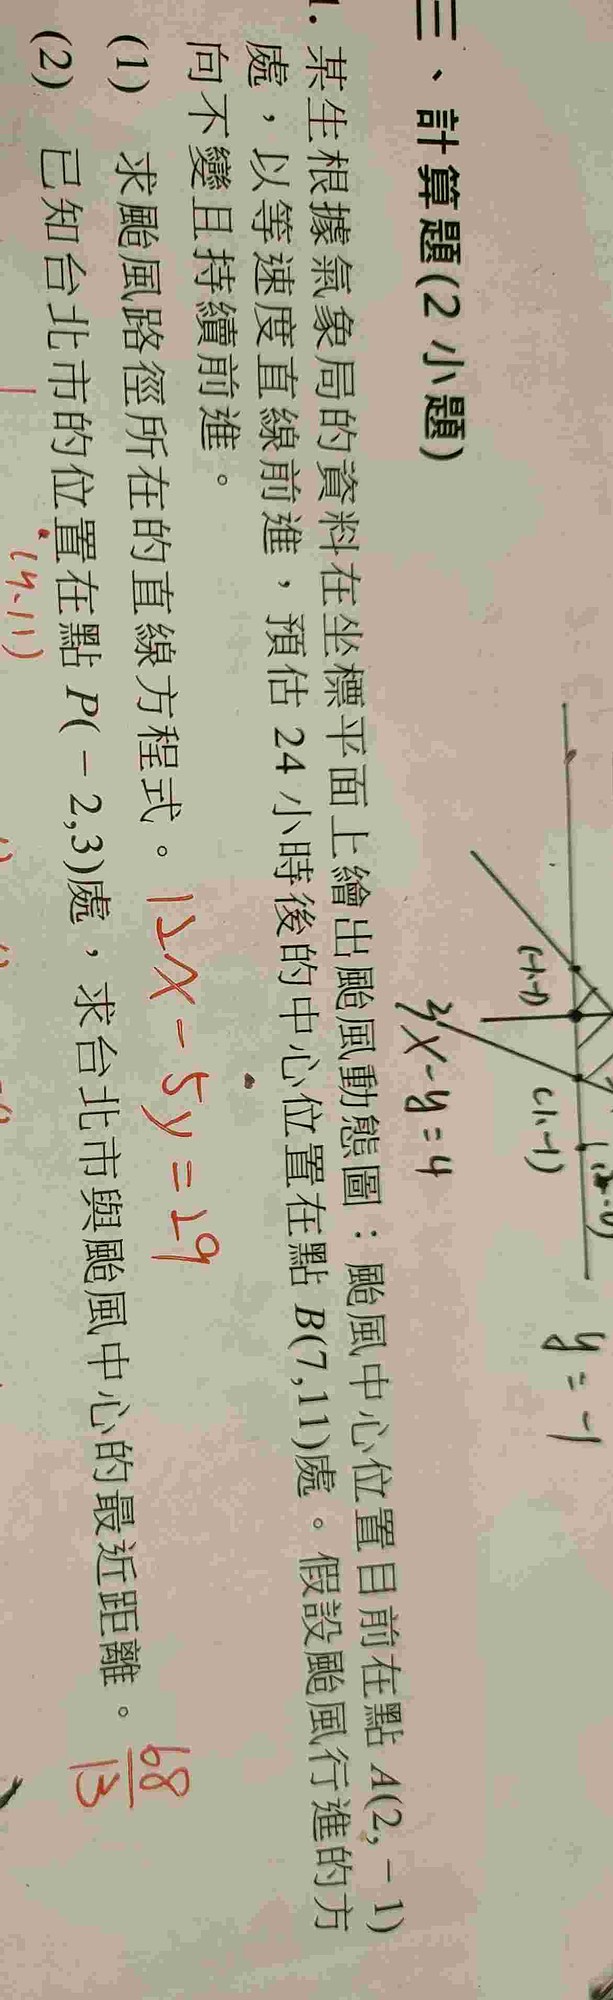 (-1,-1)
(1,-1)
y=-1
3x-y=4
三、計算題(2 小題)
1. 某生根據氣象局的資料在坐標平面上繪出颱風動態圖：颱風中心位置目前在點 A(2,-1)
處，以等速度直線前進，預估 24 小時後的中心位置在點 B(7,11)處。假設颱風行進的方
向不變且持續前進。
(1) 求颱風路徑所在的直線方程式。 12x-5y=29
(2) 已知台北市的位置在點 P(-2,3)處，求台北市與颱風中心的最近距離。 68/13